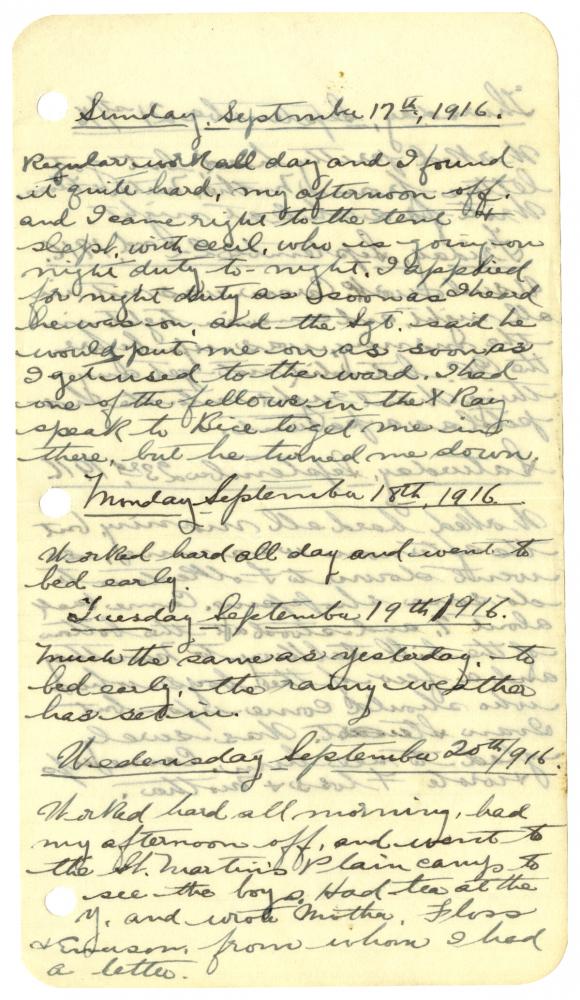 Sunday, September 17th, 1916.
Regular work all day and I found
it quite hard, my afternoon off.
and I came right to the tent &
slept, with Cecil, who is going on
night duty to-night. I applied
for night duty as soon as I heard
he was on, and the Sgt. said he
would put me on as soon as
I get used to the ward. I had
one of the fellows in the X Ray
speak to Bice to get me in
there, but he turned me down.
Monday September 18th, 1916
Worked hard all day and went to
bed early.
Tuesday September 19th, 1916.
Much the same as yesterday, to
bed early, the rainy weather
has set in.
Wedensday September 20th, 1916.
Worked hard all morning, had
my afternoon off, and went to
the St. Martin's Plain camp to
see the boys. Had tea at the
Y. and wrote Mother, Floss
& Emerson, from whom I had
a letter.